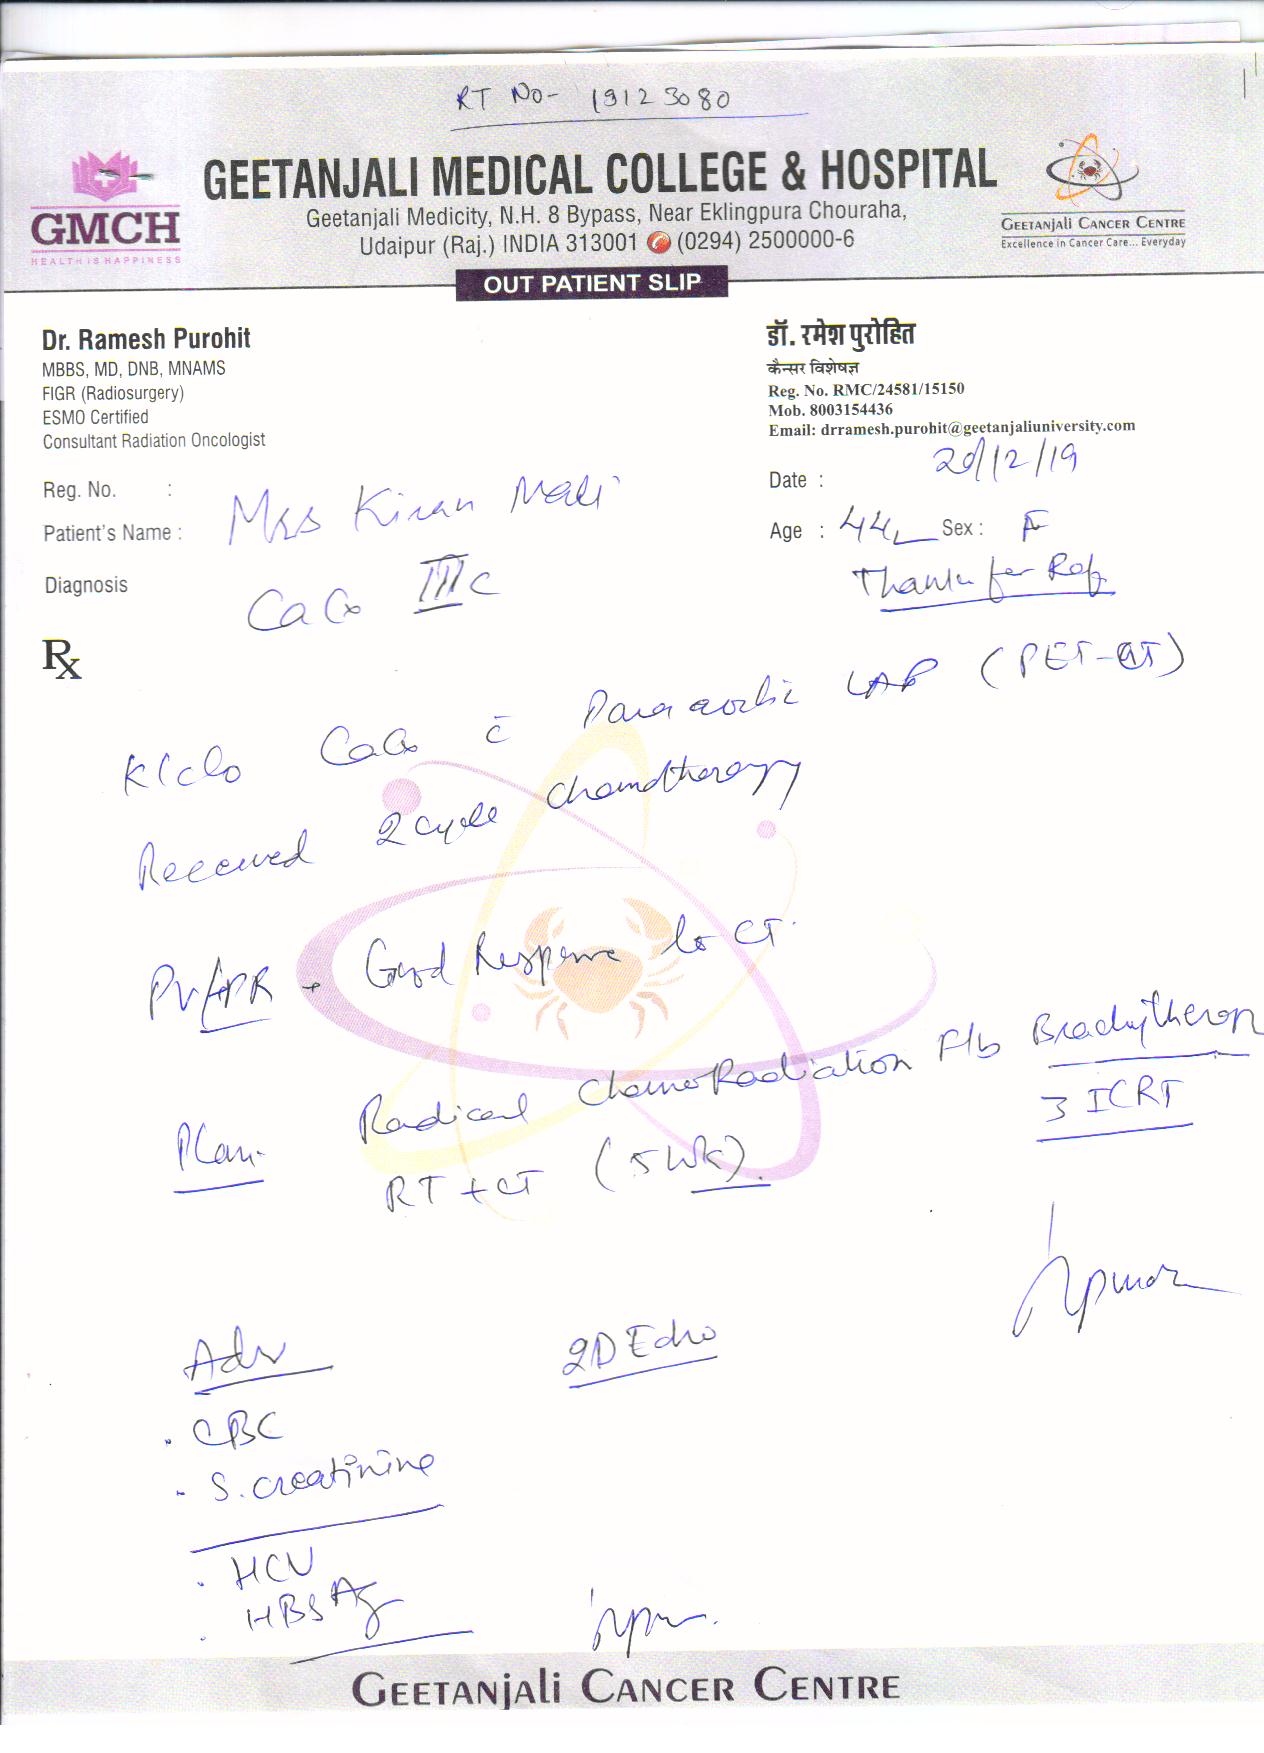 RT No- 19123080
GMCH
HEALTH IS HAPPINESS
GEETANJALI MEDICAL COLLEGE & HOSPITAL
Geetanjali Medicity, N.H. 8 Bypass, Near Eklingpura Chouraha,
Udaipur (Raj.) INDIA 313001 (0294) 2500000-6
GEETANJALI CANCER CENTRE
Excellence in Cancer Care... Everyday
OUT PATIENT SLIP
Dr. Ramesh Purohit
MBBS, MD, DNB, MNAMS
FIGR (Radiosurgery)
ESMO Certified
Consultant Radiation Oncologist
डॉ. रमेश पुरोहित
कैन्सर विशेषज्ञ
Reg. No. RMC/24581/15150
Mob. 8003154436
Email: drramesh.purohit@geetanjaliuniversity.com
Reg. No. :
Date : 20/12/19
Patient's Name : Mrs Kiran Mali
Age : 44 Sex : F
Diagnosis CaCx IIIc
Thanks for Ref
Rx
K/c/o CaCx c̄ Para aortic LAP (PET-CT)
Received 2 cycle chemotherapy
PV/PR - Good Response to CT.
Plan- Radical ChemoRadiation F/b Brachytherapy
RT + CT (5 Wk). 3 ICRT
Adv 2D Echo
. CBC
. S. creatinine
. HCV
. HBSAg
GEETANJALI CANCER CENTRE